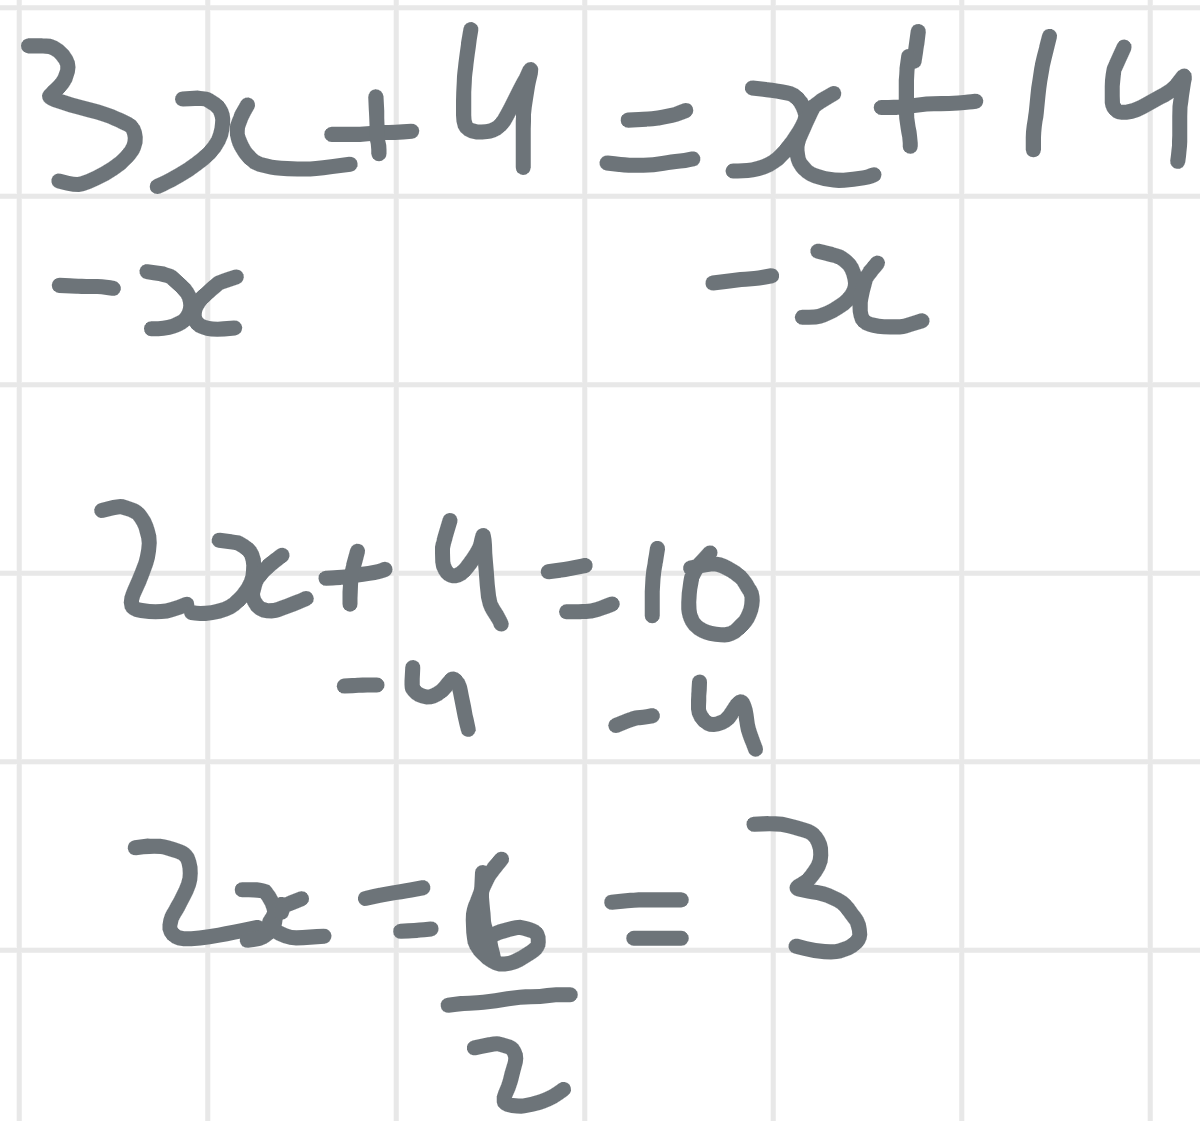 3x+4=x+14
-x -x
2x+4=10
-4 -4
2x=6/2=3